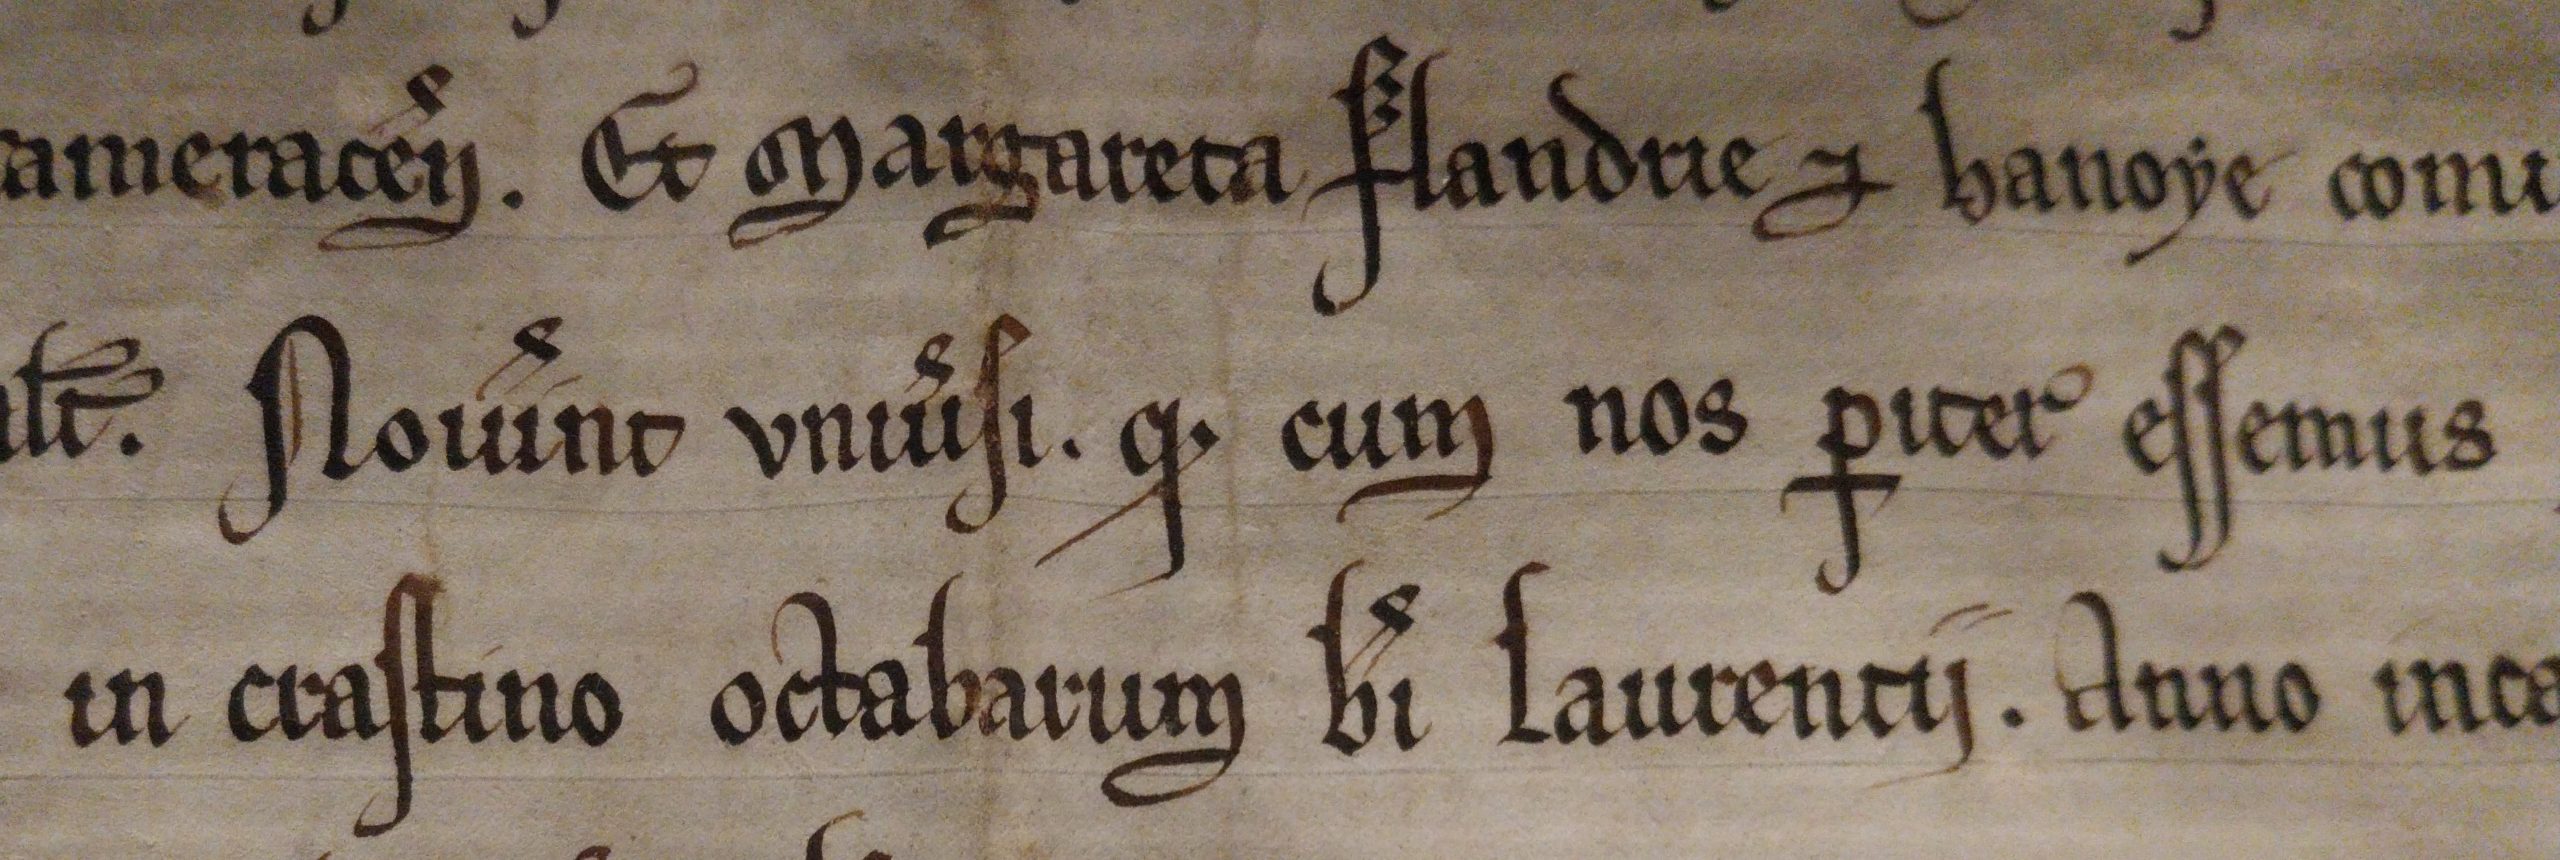 cameracen̄. Et Margareta Flandrie ⁊ hanoye comi
Nouint vniũsi. ꝙ cum nos ꝑiter essemus
in crastino octabarum bi̅ laurentij. Anno inca